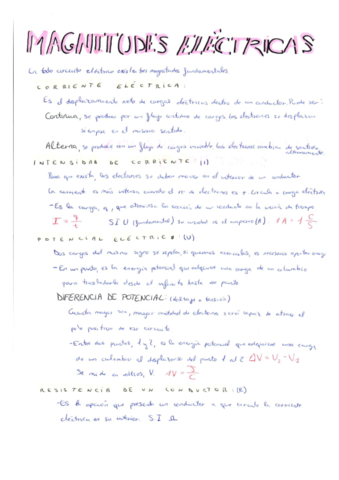 MAGNITUDES ELÉCTRICAS
En todo circuito eléctrico existen tres magnitudes fundamentales
CORRIENTE ELÉCTRICA:
Es el desplazamiento neto de cargas eléctricas dentro de un conductor. Puede ser:
Continua, se produce por un flujo uniforme de cargas. Los electrones se desplazan
siempre en el mismo sentido.
Alterna, se produce con un flujo de cargas variable. Los electrones cambian de sentido
INTENSIDAD DE CORRIENTE: (I)
Para que exista, los electrones se deben mover en el interior de un conductor.
La corriente es más intensa cuando el nº de electrones es +
- Es la carga, q, que atraviesa la sección de un conductor en la unidad de tiempo
I = q/t SIU (fundamental) su unidad es el amperio (A) 1A = 1 C/S
POTENCIAL ELÉCTRICO: (U)
Dos cargas del mismo signo se repelen, si queremos acercarlas, es necesario aportar energía
- En un punto, es la energía potencial que adquiere una carga de un culombio
para trasladarla desde el infinito hasta ese punto
DIFERENCIA DE POTENCIAL: (voltaje o tensión)
Cuanto mayor sea, mayor cantidad de electrones será capaz de atraer el
polo positivo de ese circuito
- Entre dos puntos, 1 y 2, es la energía potencial que adquiere una carga
de un culombio al desplazarse del punto 1 al 2 ΔV = V₁ - V₂
Se mide en voltios, V. 1V = J/C
RESISTENCIA DE UN CONDUCTOR: (R)
- Es la oposición que presenta un conductor a que circule la corriente
eléctrica en su interior. S.I Ω